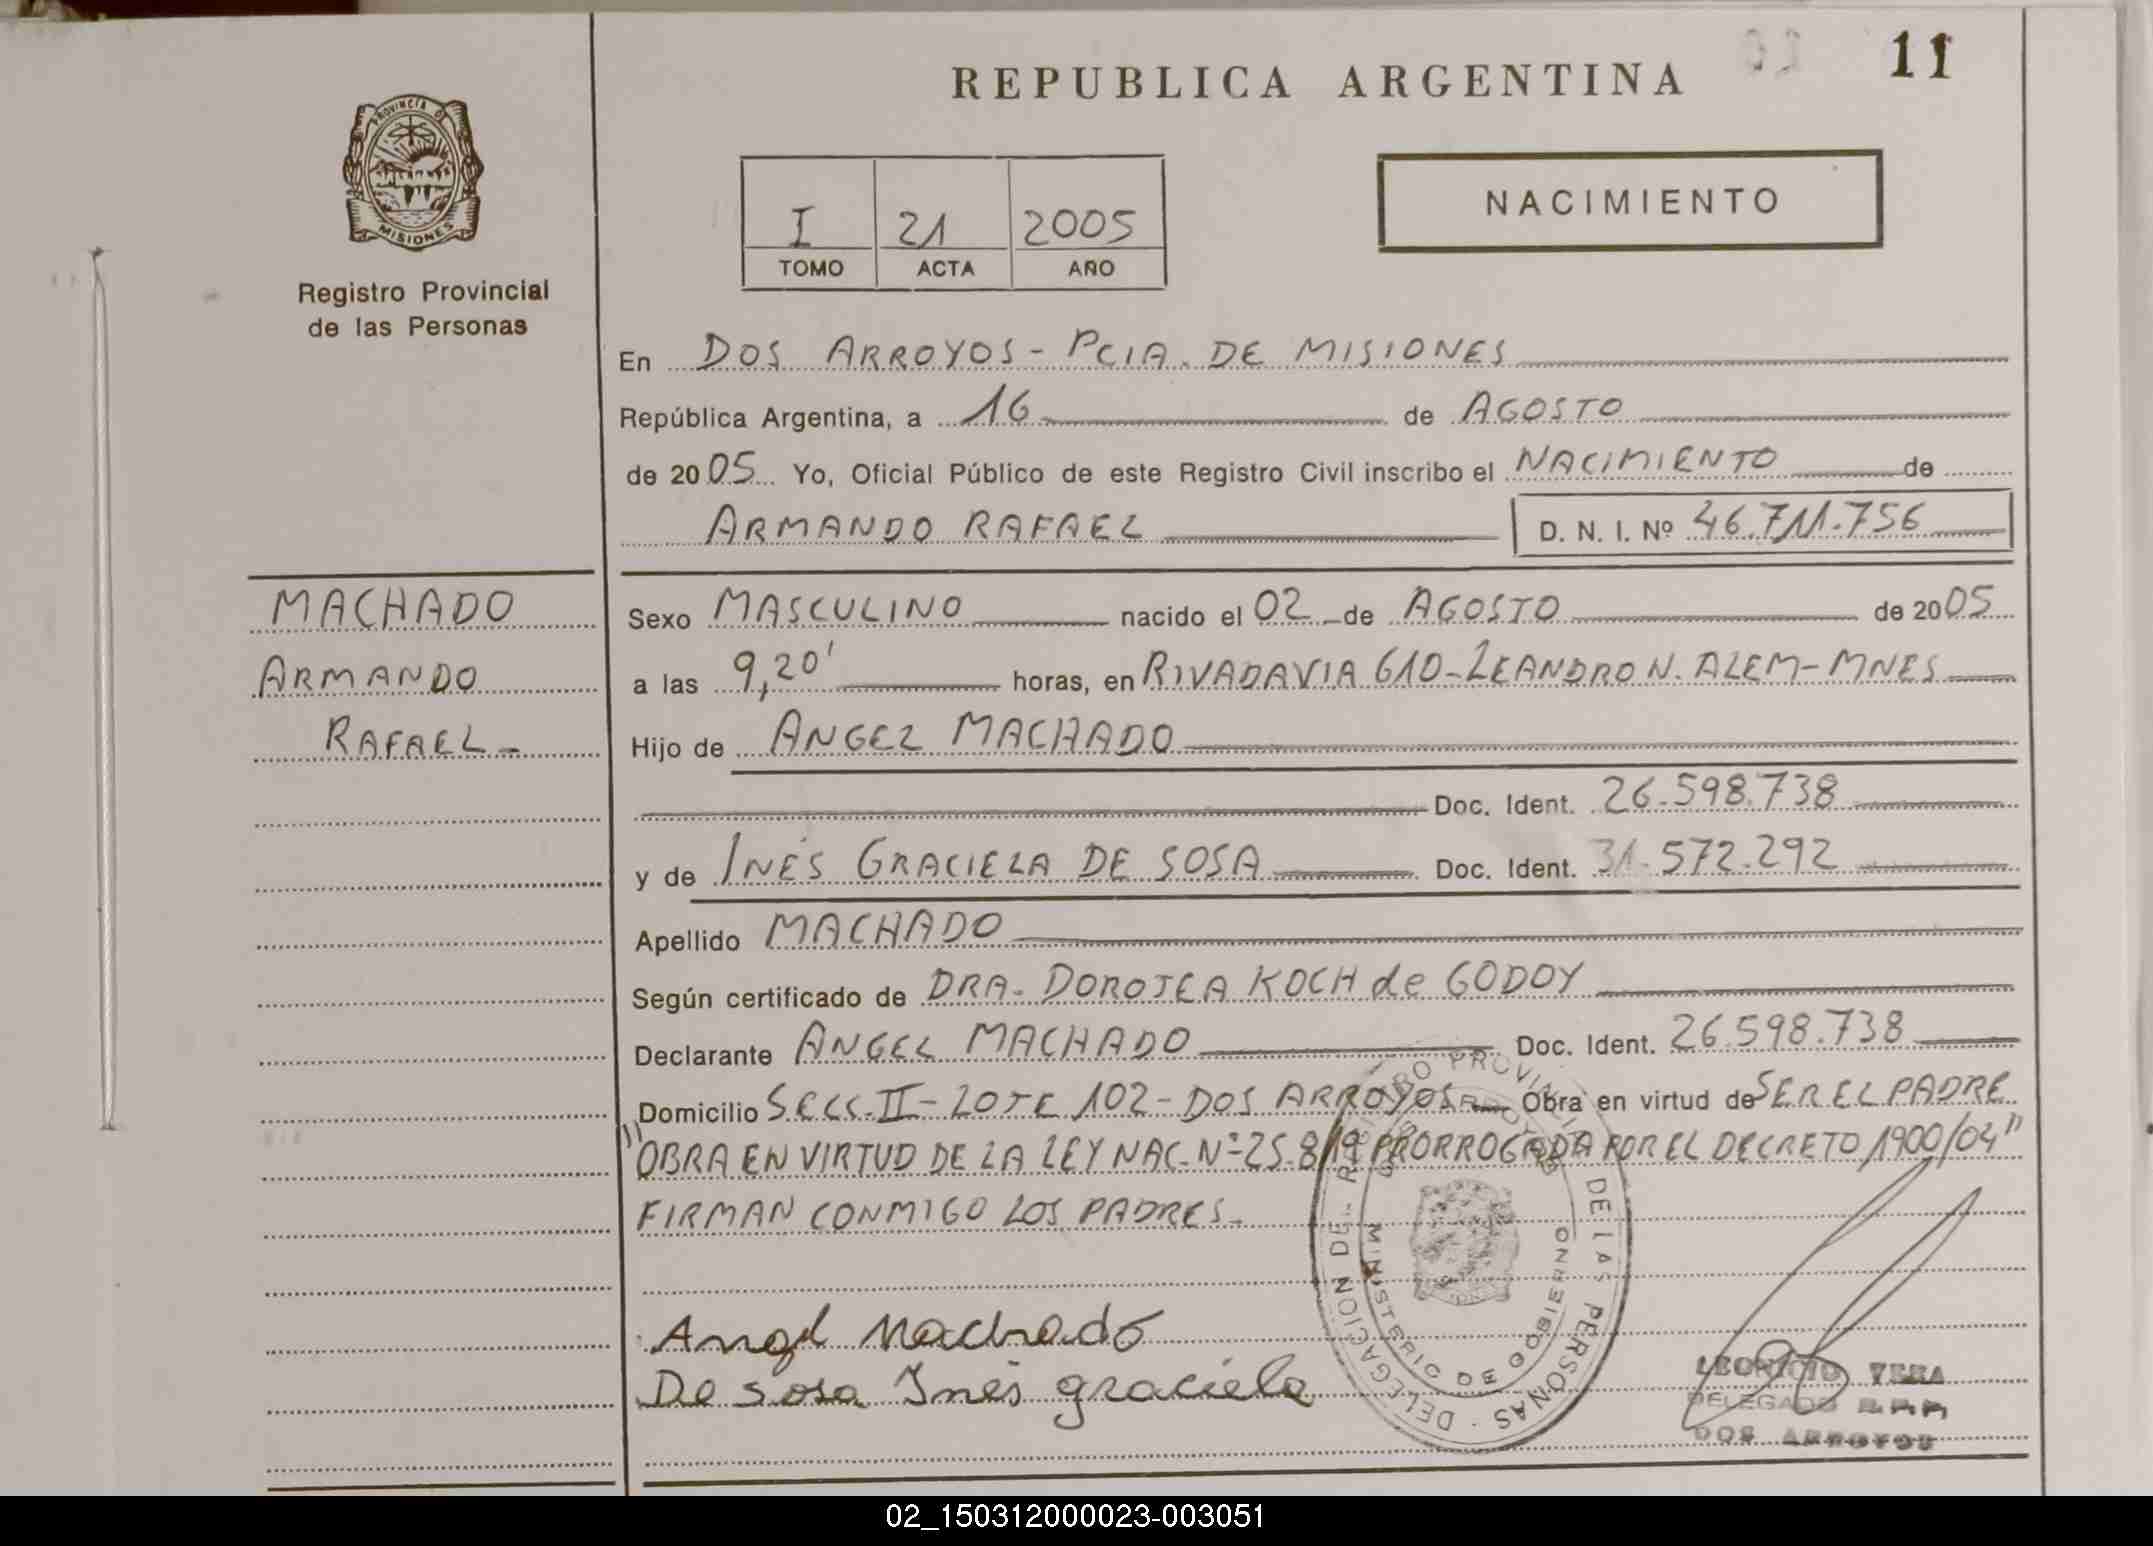 REPUBLICA ARGENTINA
11
PROVINCIA DE
MISIONES
Registro Provincial
de las Personas
I 21 2005
TOMO ACTA AÑO
NACIMIENTO
En DOS ARROYOS - PCIA. DE MISIONES
República Argentina, a 16 de AGOSTO
de 2005 Yo, Oficial Público de este Registro Civil inscribo el NACIMIENTO de
ARMANDO RAFAEL D. N. I. Nº 46.711.756
MACHADO
ARMANDO
RAFAEL-
Sexo MASCULINO nacido el 02 de AGOSTO de 2005
a las 9,20' horas, en RIVADAVIA 610-LEANDRO N. ALEM-MNES
Hijo de ANGEL MACHADO
Doc. Ident. 26.598.738
y de INÉS GRACIELA DE SOSA Doc. Ident. 31.572.292
Apellido MACHADO
Según certificado de DRA. DOROTEA KOCH de GODOY
Declarante ANGEL MACHADO Doc. Ident. 26.598.738
Domicilio SECC. II - LOTE 102 - DOS ARROYOS Obra en virtud de SER EL PADRE
"OBRA EN VIRTUD DE LA LEY NAC. Nº 25.819 PRORROGADA POR EL DECRETO 1900/04"
FIRMAN CONMIGO LOS PADRES.
Angel Machado
De sosa Inés graciela
REGISTRO PROVINCIAL DE LAS PERSONAS - DELEGACION DE
MINISTERIO DE GOBIERNO
DOS ARROYOS
LEONICIO VERA
DELEGADO R.P.P.
DOS ARROYOS
02_150312000023-003051